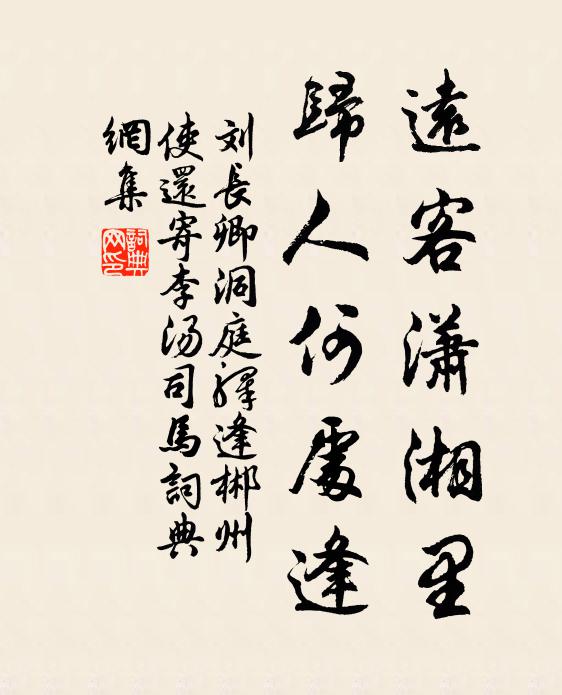 遠客瀟湘里
歸人何處逢
刘長卿洞庭驛逢郴州
使還寄李湯司馬詞典
網集
詞典
网印